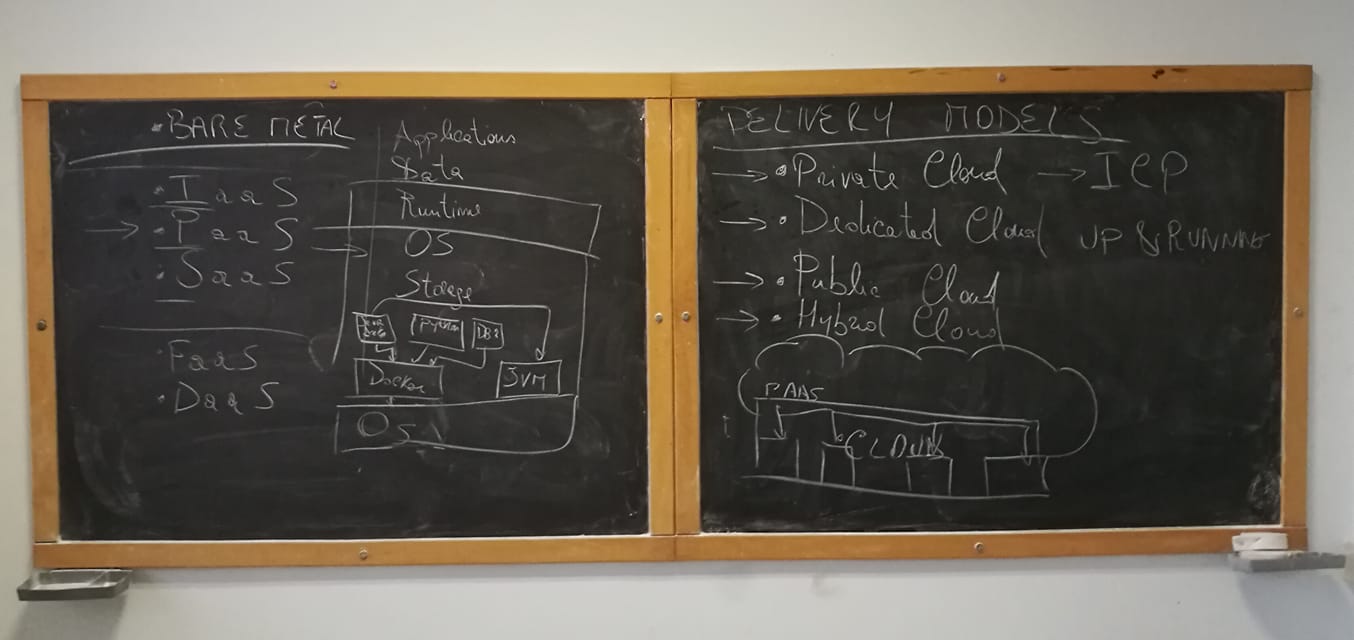 • BARE METAL
• IaaS
• PaaS
• SaaS
• FaaS
• DaaS
Applications
Data
Runtime
OS
Storage
Python
DB2
Docker
JVM
OS
DELIVERY MODELS
• Private Cloud → ICP
• Dedicated Cloud UP & RUNNING
• Public Cloud
• Hybrid Cloud
PAAS